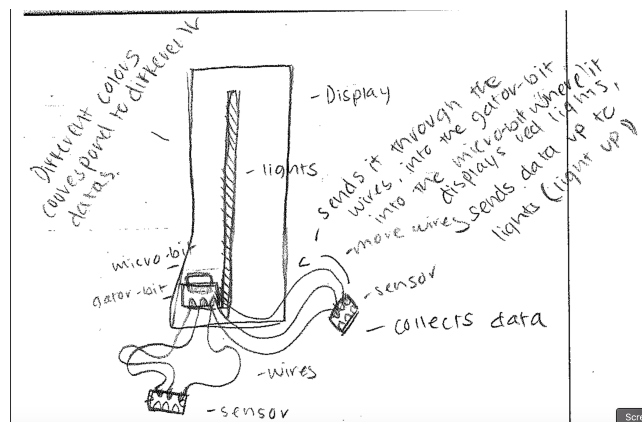 Different colors
correspond to different
datas.
-Display
-lights
sends it through the
wires, into the gator-bit
into the micro-bit where it
displays red lights,
sends data up to
lights (light up)
-more wires
micro-bit
gator-bit
-sensor
-collects data
-wires
-sensor
Scre